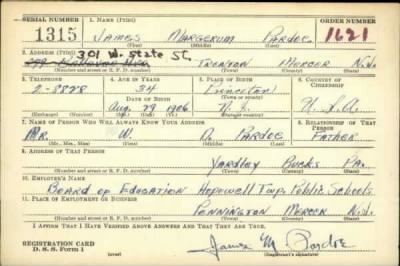 SERIAL NUMBER 1. NAME (Print) ORDER NUMBER
1315 JAMES MARGERUM PARDOE 1621
(First) (Middle) (Last)
301 W. State St.
2. ADDRESS (Print)
TRENTON MERCER N.J.
(Number and street or R. F. D. number) (Town) (County) (State)
3. TELEPHONE 4. AGE IN YEARS 5. PLACE OF BIRTH 6. COUNTRY OF CITIZENSHIP
2-3878 34 Princeton
DATE OF BIRTH (Town or county)
Aug. 29 1906 N.J. U.S.A.
(Exchange) (Number) (Mo.) (Day) (Yr.) (State or country)
7. NAME OF PERSON WHO WILL ALWAYS KNOW YOUR ADDRESS 8. RELATIONSHIP OF THAT PERSON
MR. W. PARDOE FATHER
(Mr., Mrs., Miss) (First) (Middle) (Last)
9. ADDRESS OF THAT PERSON
YARDLEY BUCKS PA.
(Number and street or R. F. D. number) (Town) (County) (State)
10. EMPLOYER'S NAME
BOARD OF EDUCATION Hopewell Twp. Public Schools
11. PLACE OF EMPLOYMENT OR BUSINESS
PENNINGTON MERCER N.J.
(Number and street or R. F. D. number) (Town) (County) (State)
I AFFIRM THAT I HAVE VERIFIED ABOVE ANSWERS AND THAT THEY ARE TRUE.
REGISTRATION CARD
D. S. S. Form 1 James M. Pardoe
(Registrant's signature)